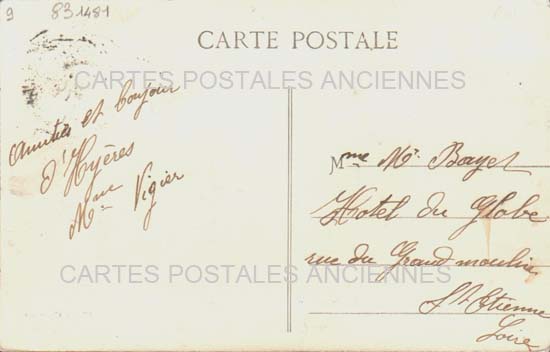 9
831481
CARTE POSTALE
CARTES POSTALES ANCIENNES
Amitiés et bonjour
d'Hyères
Mme Vigier
Mme Mr. Bayet
Hotel du Globe
rue du Grand moulin
St Etienne
Loire
CARTES POSTALES ANCIENNES